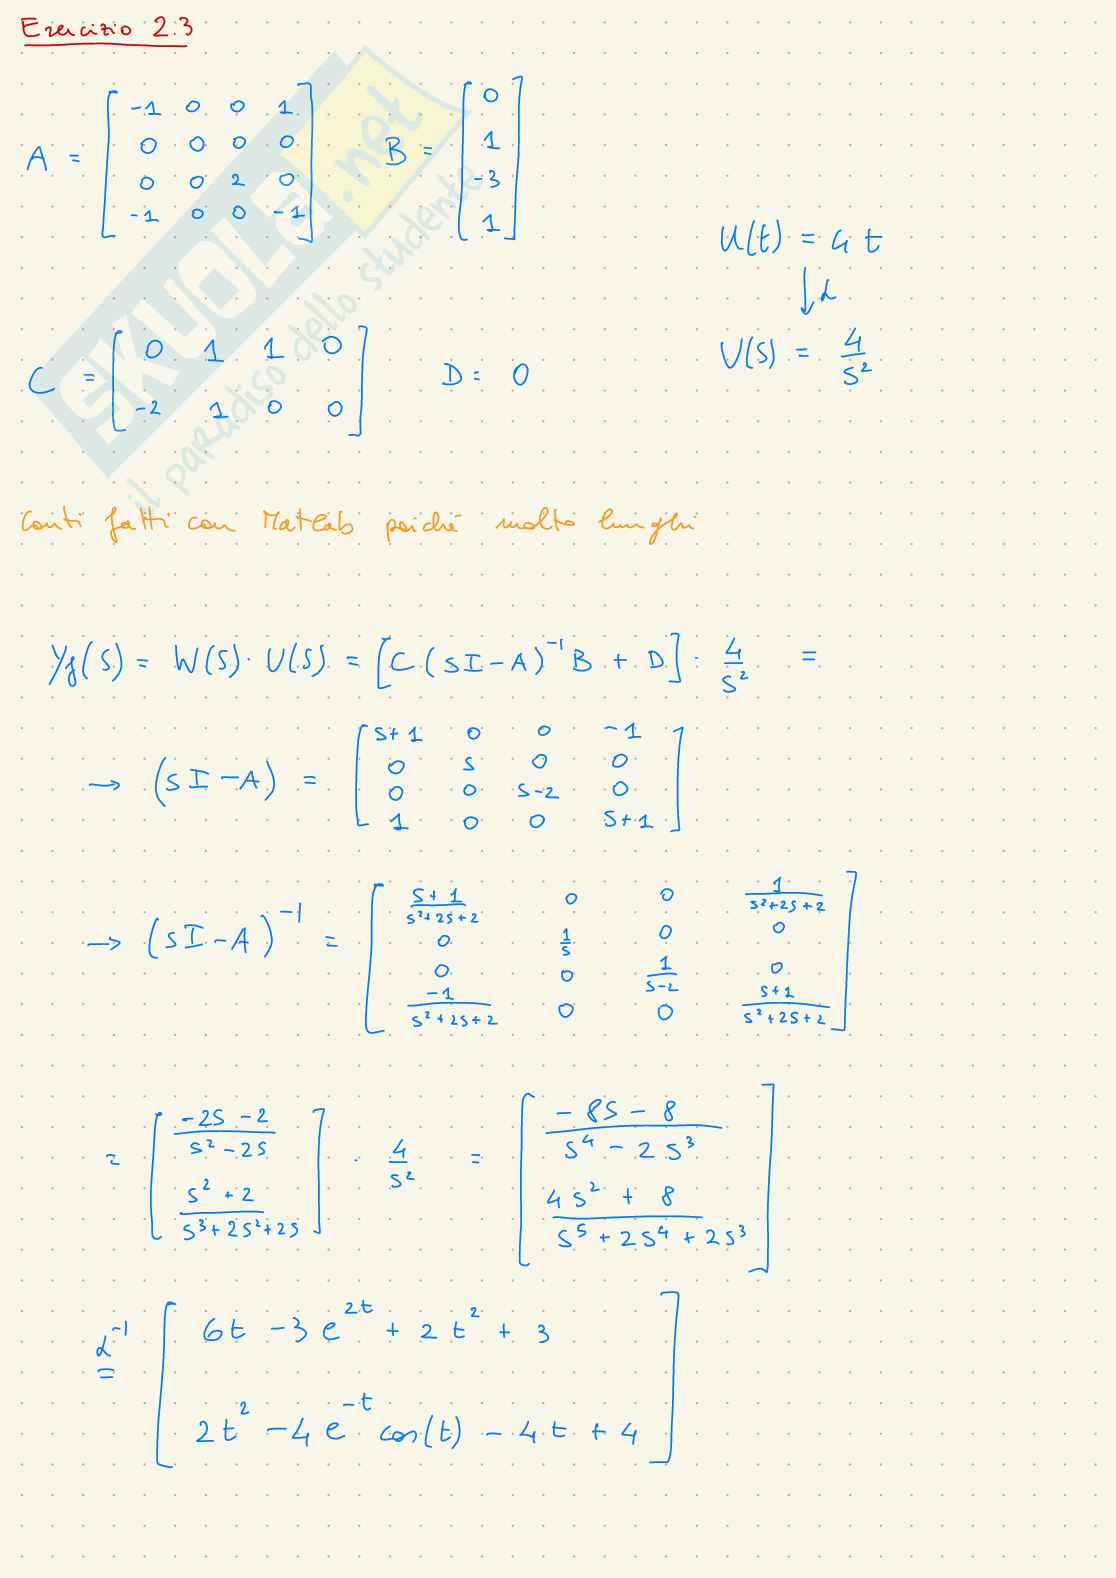 Esercizio 2.3
A = [ -1 0 0 1
0 0 0 0
0 0 2 0
-1 0 0 -1 ]
B = [ 0
1
-3
1 ]
U(t) = 4 t
↓ L
U(s) = 4/s²
C = [ 0 1 1 0
-2 1 0 0 ]
D = 0
SKUOLA.net
il paradiso dello studente
Conti fatti con Matlab poiché molto lunghi
Yf(s) = W(s) · U(s) = [C (sI - A)⁻¹ B + D] · 4/s² =
→ (sI - A) = [ s+1 0 0 -1
0 s 0 0
0 0 s-2 0
1 0 0 s+1 ]
→ (sI - A)⁻¹ = [ (s+1)/(s²+2s+2) 0 0 1/(s²+2s+2)
0 1/s 0 0
0 0 1/(s-2) 0
-1/(s²+2s+2) 0 0 (s+1)/(s²+2s+2) ]
= [ (-2s-2)/(s²-2s)
(s²+2)/(s³+2s²+2s) ] · 4/s² = [ (-8s-8)/(s⁴-2s³)
(4s²+8)/(s⁵+2s⁴+2s³) ]
L⁻¹ = [ 6t - 3e^2t + 2t² + 3
2t² - 4e^-t cos(t) - 4t + 4 ]